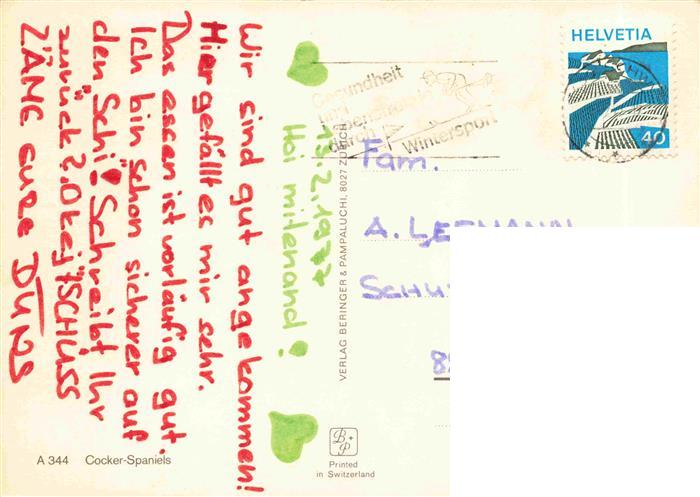 15.2.1977
Hoi mitenand!
Wir sind gut angekommen!
Hier gefällt es mir sehr.
Das essen ist vorläufig gut.
Ich bin schön sicherer auf
den Schi! Schreibt Ihr
zurück? Okej TSCHÜSS
ZÄME eure
HELVETIA
40
Gesundheit
und
durch
Wintersport
Fam.
A. LEEMANN
SCHU
8
VERLAG BERINGER & PAMPALUCHI, 8027 ZÜRICH
B+P
Printed
in Switzerland
A 344 Cocker-Spaniels